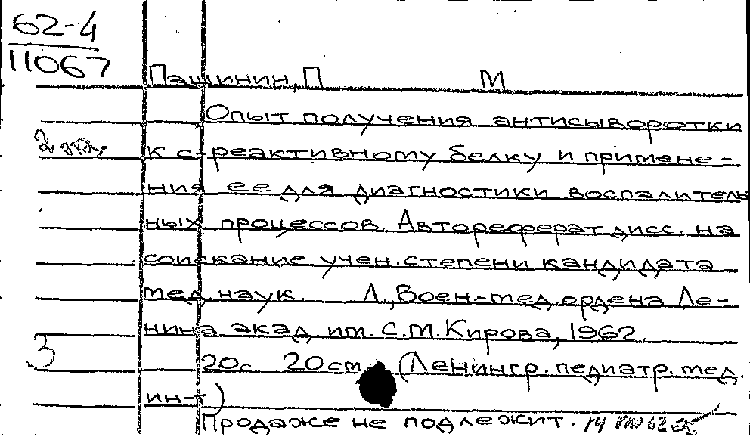 62-4
11067
Пашинин, П М
Опыт получения антисыворотки
2 экз.
к с-реактивному белку и примене-
ния ее для диагностики воспалитель
ных процессов. Автореферат дисс. на
соискание учен. степени кандидата
мед. наук. Л., Воен-мед. ордена Ле-
нина акад. им. С.М. Кирова, 1962.
3
20с. 20см. (Ленингр. педиатр. мед.
ин-т)
Продаже не подлежит.